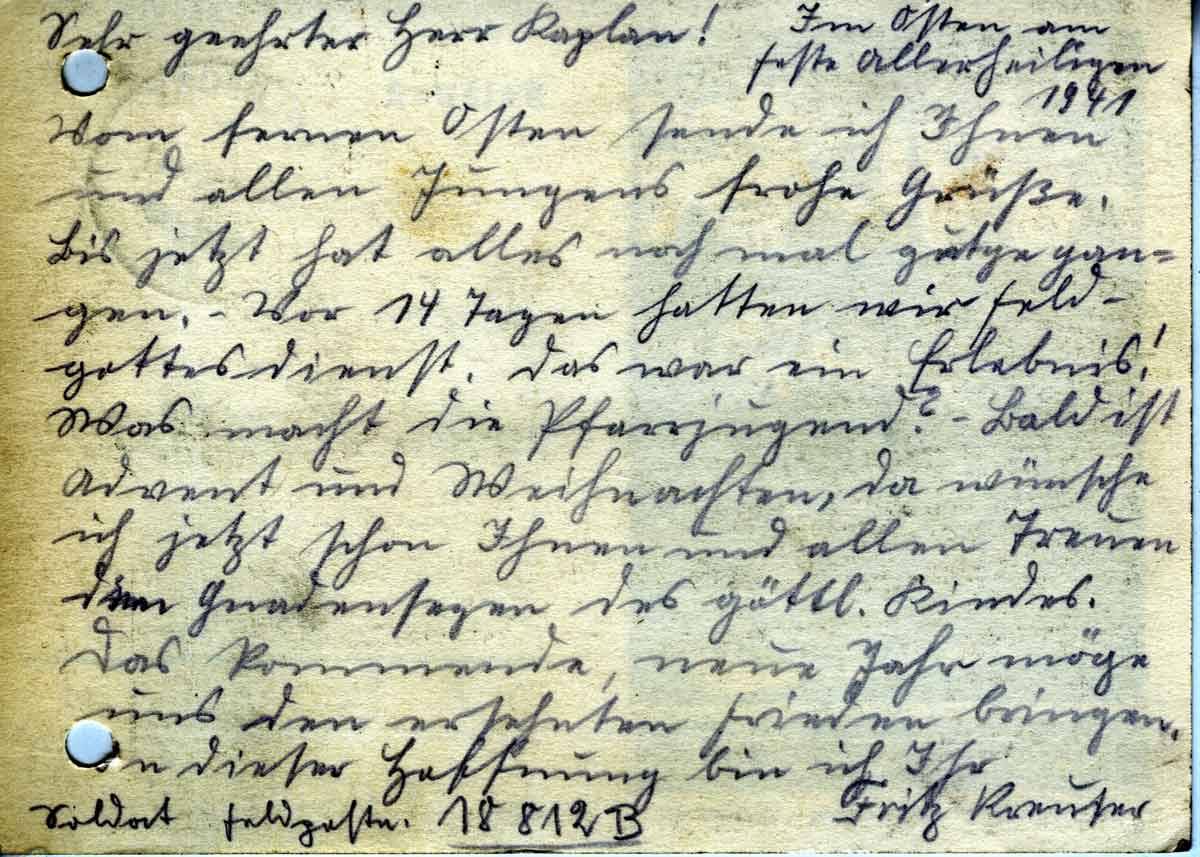 Sehr geehrter Herr Kaplan!
Im Osten am
Feste Allerheiligen
1941
Vom fernen Osten sende ich Ihnen
und allen Jungens frohe Grüße.
Bis jetzt hat alles noch mal gutgegan=
gen. - Vor 14 Tagen hatten wir Feld-
gottesdienst. Das war ein Erlebnis!
Was macht die Pfarrjugend? - Bald ist
Advent und Weihnachten, da wünsche
ich jetzt schon Ihnen und allen Treuen
den Gnadensegen des göttl. Kindes.
Das kommende, neue Jahr möge
uns den ersehnten Frieden bringen.
In dieser Hoffnung bin ich Ihr
Fritz Kreuser
Soldat Feldpostn. 18 812 B